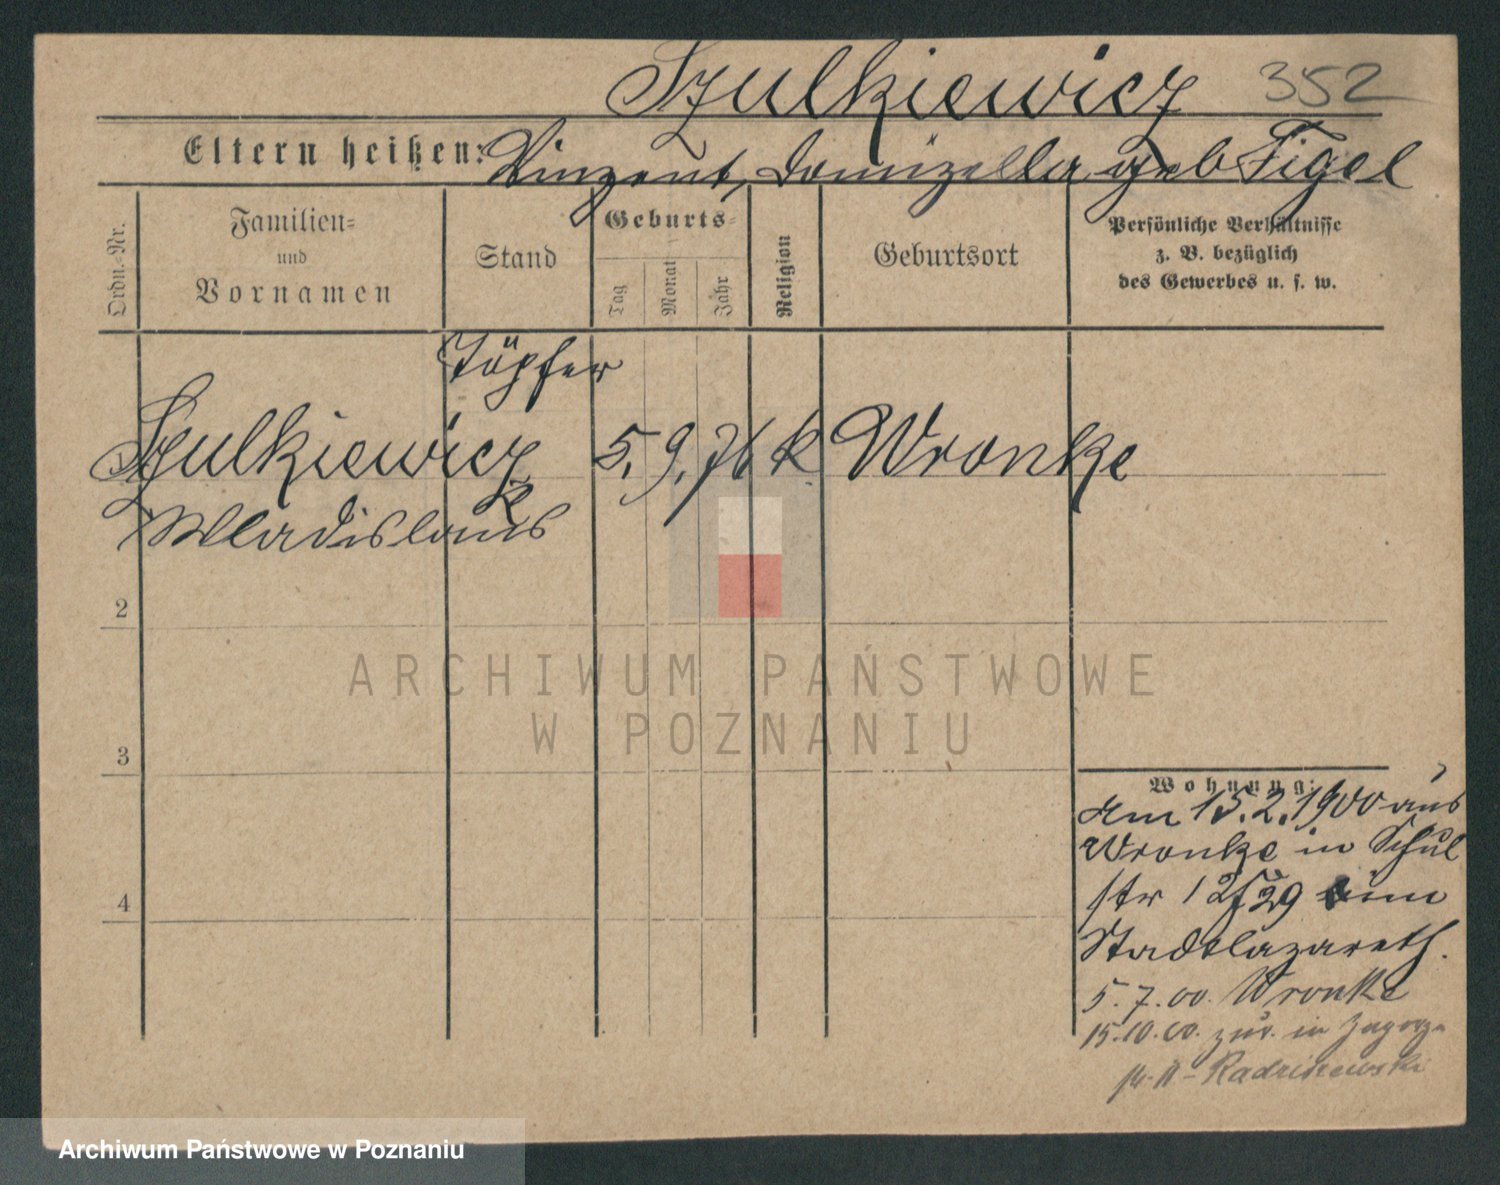 Szulkiewicz 352
Eltern heißen: Vinzent, Domizella geb Figel
Ordn.-Nr.
Familien-
und
Vornamen
Stand
Geburts-
Tag
Monat
Jahr
Religion
Geburtsort
Persönliche Verhältnisse
z. B. bezüglich
des Gewerbes u. s. w.
Töpfer
Szulkiewicz 5. 9. 76 k Wronke
Wladislaus
2
3
4
ARCHIWUM PAŃSTWOWE
W POZNANIU
Wohnung:
am 15.2.1900 aus
Wronke in Schul
str 12 im
Stadtlazareth.
5.7.00. Wronke
15.10.00. zur. in
Radziszewski
Archiwum Państwowe w Poznaniu